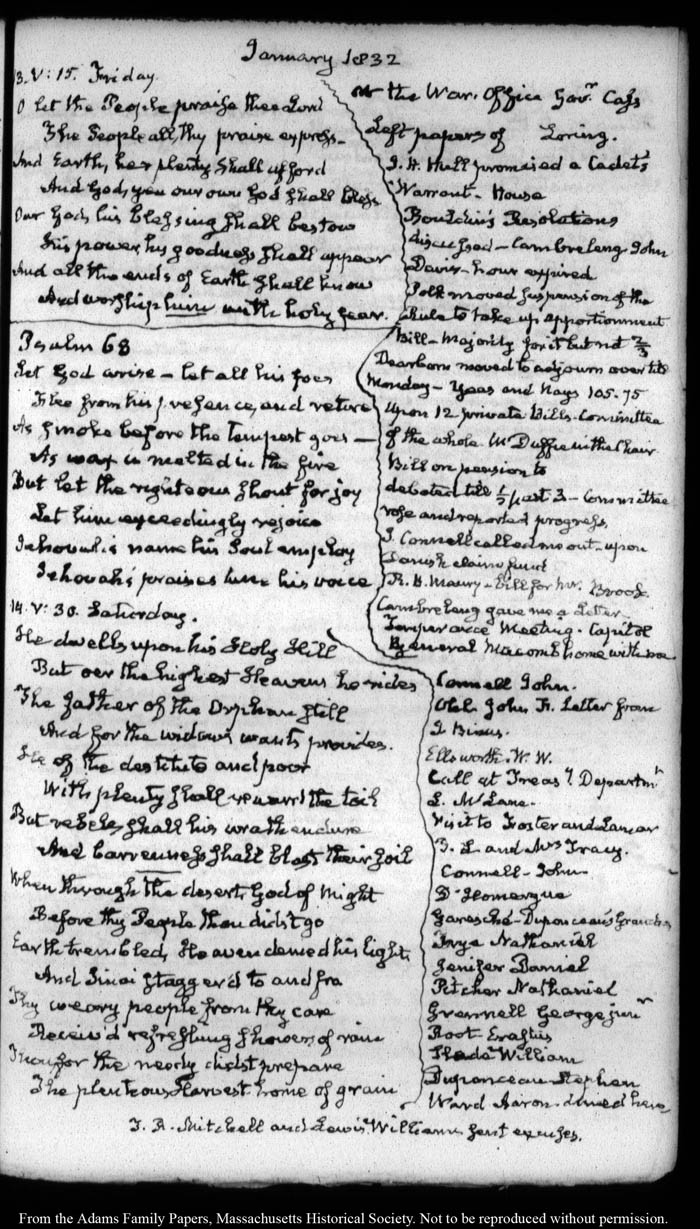 January 1832
13. V: 15. Friday.
O let the People praise thee Lord
The People all, thy praise express—
And Earth, her plenty shall afford
And God, yea our own God shall bless
Our God, his blessing shall bestow
His power, his goodness shall appear
And all the ends of Earth shall know
And worship him with holy fear.
Psalm 68
Let God arise— let all his foes
Flee from his presence, and retire
As smoke before the tempest goes—
As wax is melted in the fire
But let the righteous shout for joy
Let him exceedingly rejoice
Jehovah's name his Soul employ
Jehovah's praises tune his voice
14. V: 30. Saturday.
He dwells upon his Holy Hill
But oer the highest Heavens he rides
The father of the Orphan still
And for the widow's wants provides.
He of the destitute and poor
With plenty shall reward the toil
But rebels shall his wrath endure
And barrenness shall blast their soil
When through the desert, God of Might
Before thy People thou didst go
Earth trembled, Heaven denied his light,
And Sinai stagger'd to and fro
Thy weary people from thy care
Receiv'd refreshing showers of rain
Thou for the needy didst prepare
The plenteous Harvest-home of grain
at the War. Office Govr. Cass
Left papers of Loring.
J. H. Hull promised a Cadet's
Warrant— House
Bouldin's Resolutions
discussed— Cambreleng. John
Davis— hour expired
Polk moved suspension of the
Rule to take up apportionment
Bill— Majority for it but not 2/3
Dearborn moved to adjourn over till
Monday— Yeas and Nays 105. 75
Upon 12 private Bills. Committee
of the whole. McDuffie in the Chair
Bill on pension to
debated till 1/2 past 3— Committee
rose and reported progress.
J. Connell called me out— upon
Danish claim fund
R. B. Maury— bill for Mr. Brook
Cambreleng gave me a Letter
Temperance Meeting. Capitol
General Macomb home with me
Connell John.
John F. Letter from
Ellsworth. W. W.
Call at Treasy. Departmt.
L. McLane.
Visit to Foster and Lamar
and Mrs Tracy.
Connell— John
D'Homergue
Garesché— Duponceau's
Frye Nathaniel
Jenifer Daniel
Pitcher Nathaniel
Grennell George junr
Root Erastus
Slade William
Duponceau Stephen
Ward Aaron dined here
T. R. Mitchell and Lewis Williams sent excuses.
From the Adams Family Papers, Massachusetts Historical Society. Not to be reproduced without permission.